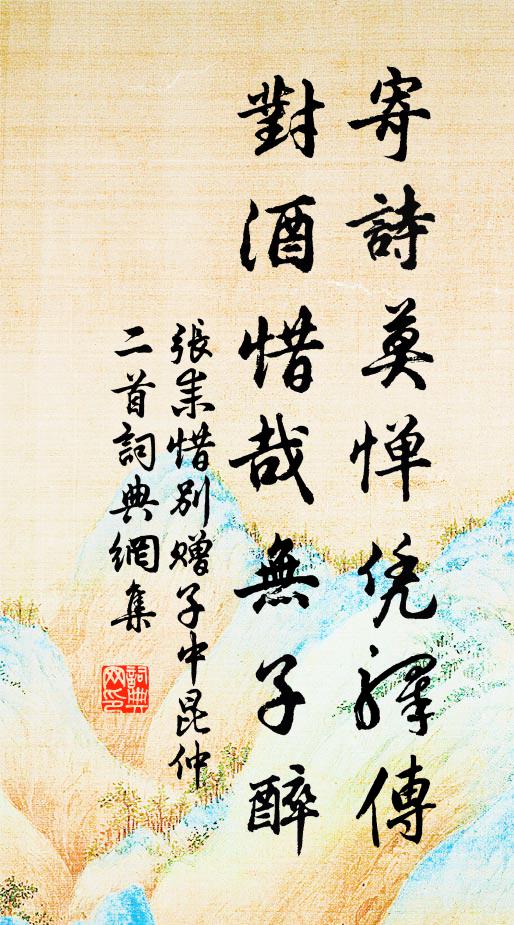 寄詩莫憚凭驛傳
對酒惜哉無子醉
張耒惜別贈子中昆仲
二首詞典網集
詞典网印